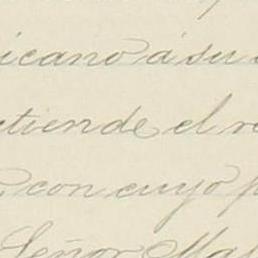 icano á su
tiende el
con cuyo p
Señor Ma